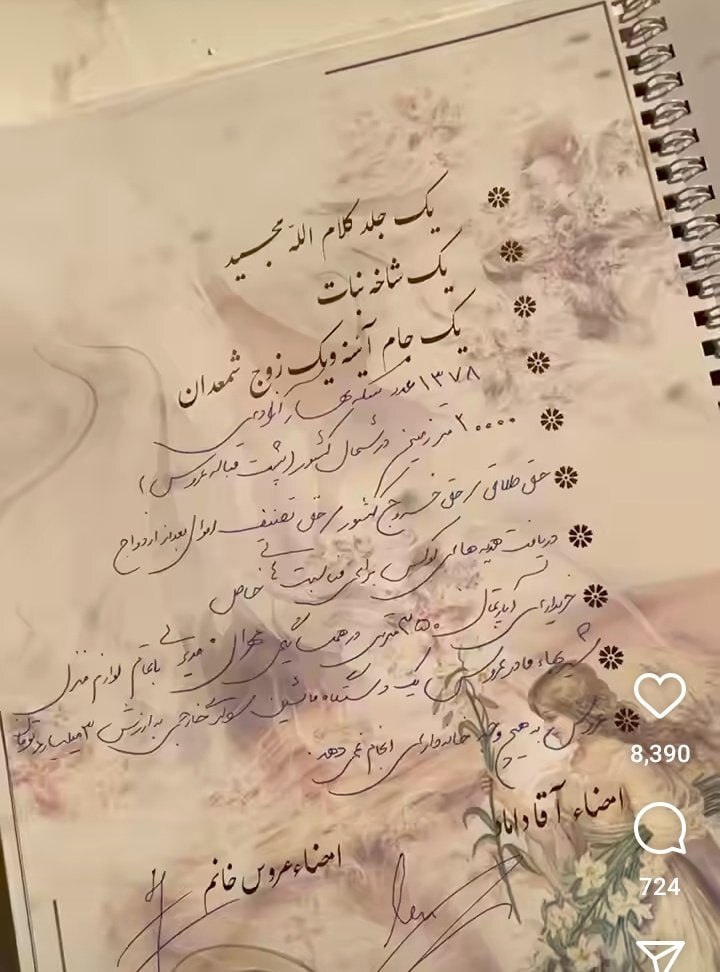 یک جلد کلام الله مجید
یک شاخه نبات
یک جام آینه و یک زوج شمعدان
۱۳۷۸ عدد سکه بهار آزادی
۲۰۰۰۰ متر زمین در شمال کشور (پشت قباله عروس)
حق طلاق، حق خروج کشور، حق تصنیف اموال بعد از ازدواج
دریافت هدیه های لوکس برای مناسبت های خاص
خریداری آپارتمان ۳۵۰ متری در تهران با تمام لوازم منزل
شیربهاء مادر عروس یک دستگاه ماشین سواری خارجی به ارزش ۳ میلیارد تومان
عروس به هیچ وجه خانه‌داری انجام نمی دهد.
امضاء آقا داماد
امضاء عروس خانم
8,390
724